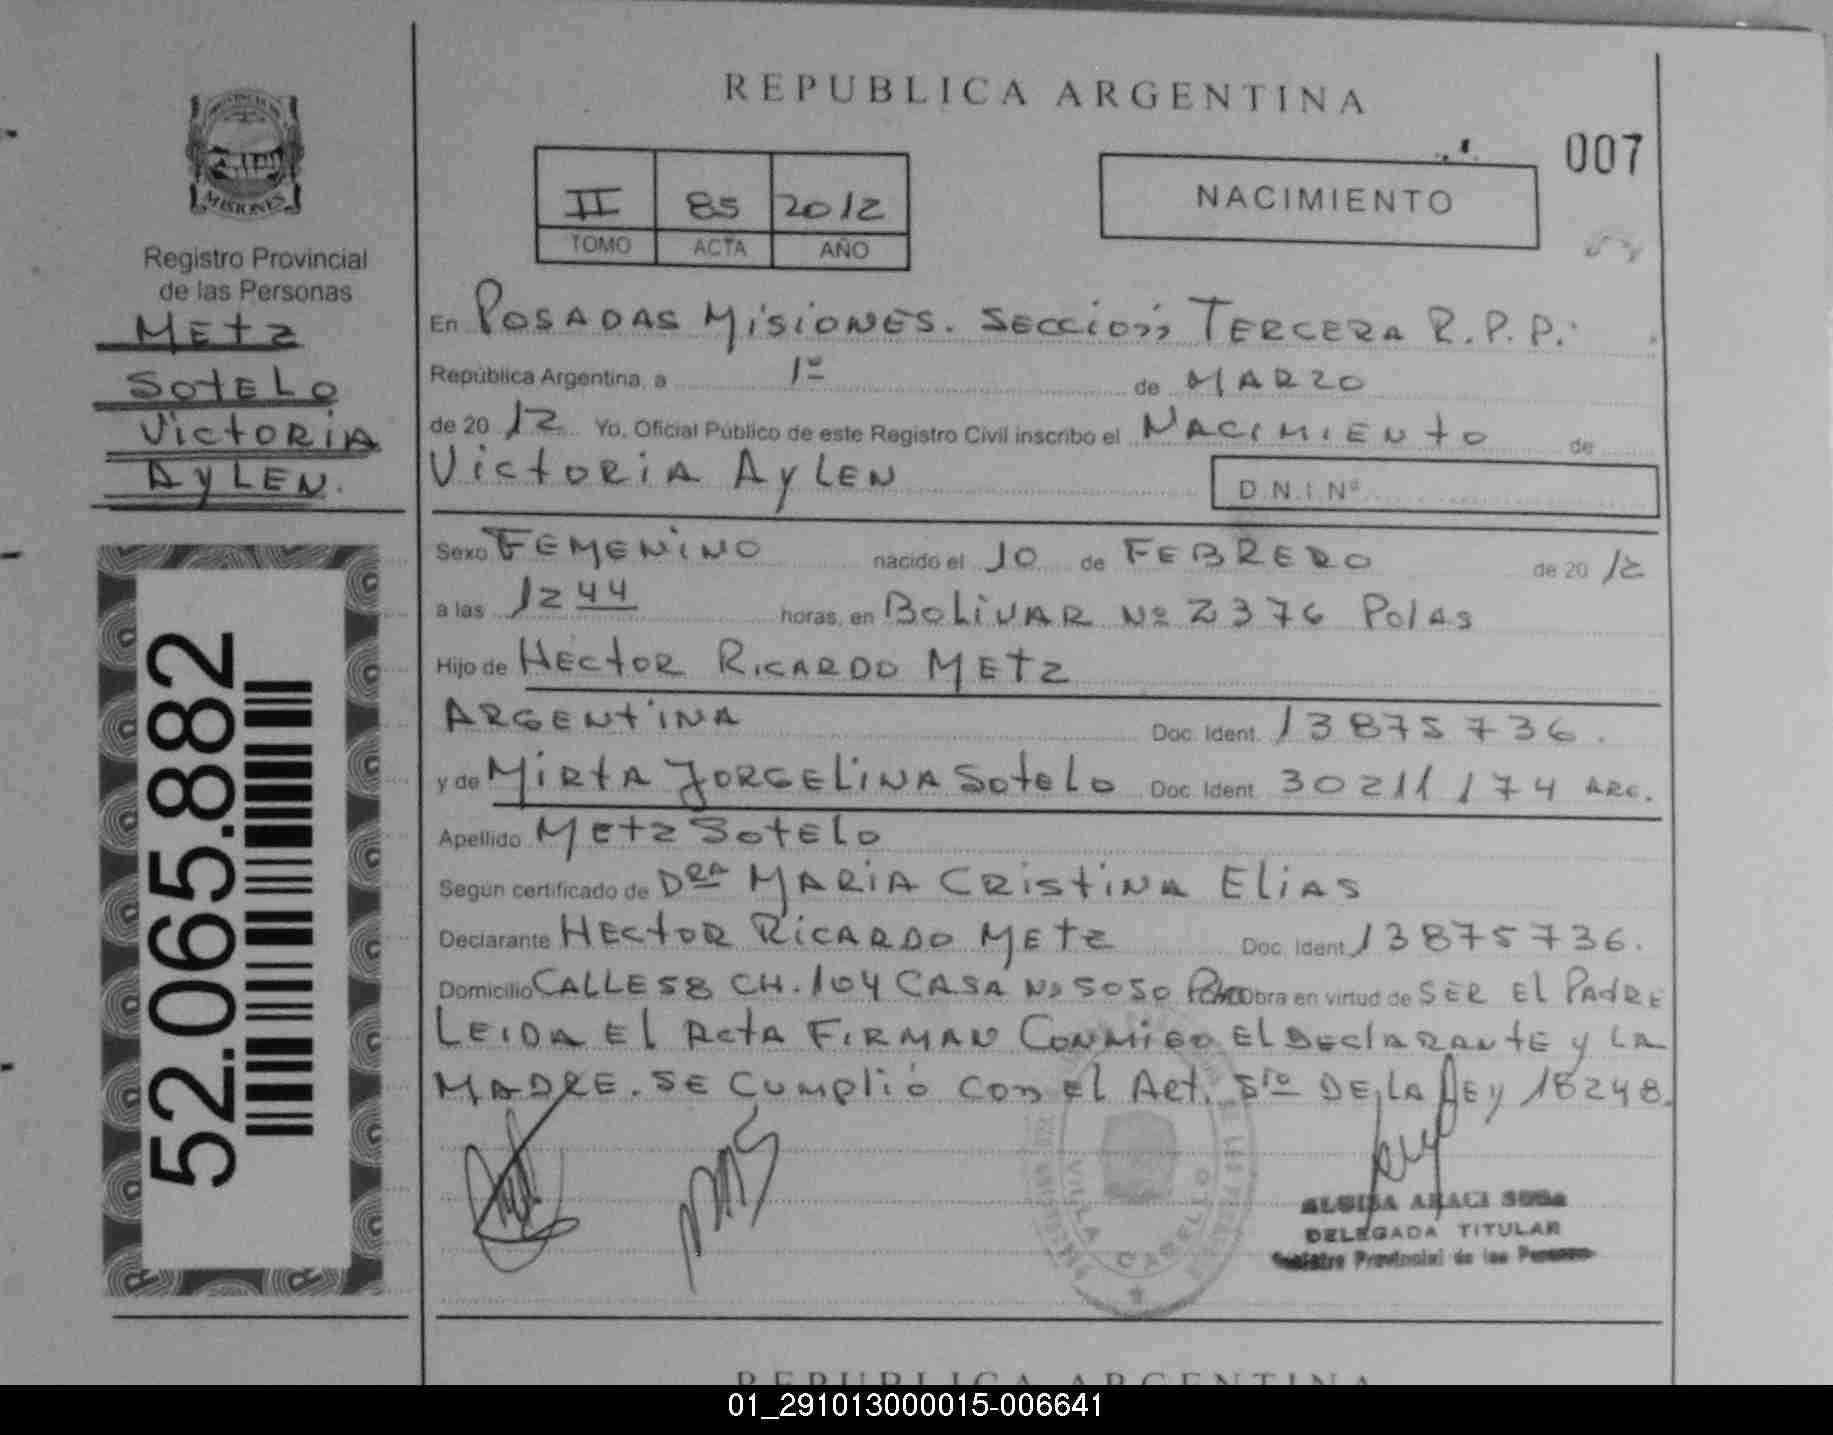 REPUBLICA ARGENTINA
007
II 85 2012
TOMO ACTA AÑO
NACIMIENTO
MISIONES
Registro Provincial
de las Personas
METZ
SOTELO
VICTORIA
AYLEN.
52.065.882
En POSADAS MISIONES. SECCIÓN TERCERA R.P.P.
República Argentina, a 1º de MARZO
de 2012 Yo, Oficial Público de este Registro Civil inscribo el NACIMIENTO de
VICTORIA AYLEN D.N.I. Nº
Sexo FEMENINO nacido el 10 de FEBRERO de 2012
a las 12 44 horas, en BOLIVAR Nº 2376 Pdas
Hijo de HECTOR RICARDO METZ
ARGENTINA Doc. Ident. 13875736.
y de MIRTA JORGELINA SOTELO Doc. Ident. 30211174 ARG.
Apellido METZ SOTELO
Según certificado de DRA MARIA CRISTINA ELIAS
Declarante HECTOR RICARDO METZ Doc. Ident. 13875736.
Domicilio CALLE 58 CH. 104 CASA Nº 5050 obra en virtud de SER EL PADRE
LEIDA EL ACTA FIRMAN CONMIGO EL DECLARANTE Y LA
MADRE. SE CUMPLIÓ CON EL ART. 5to DE LA LEY 18248.
VILLA CABELLO
ARACI SOSA
DELEGADA TITULAR
Registro Provincial de las Personas
REPUBLICA ARGENTINA
01_291013000015-006641